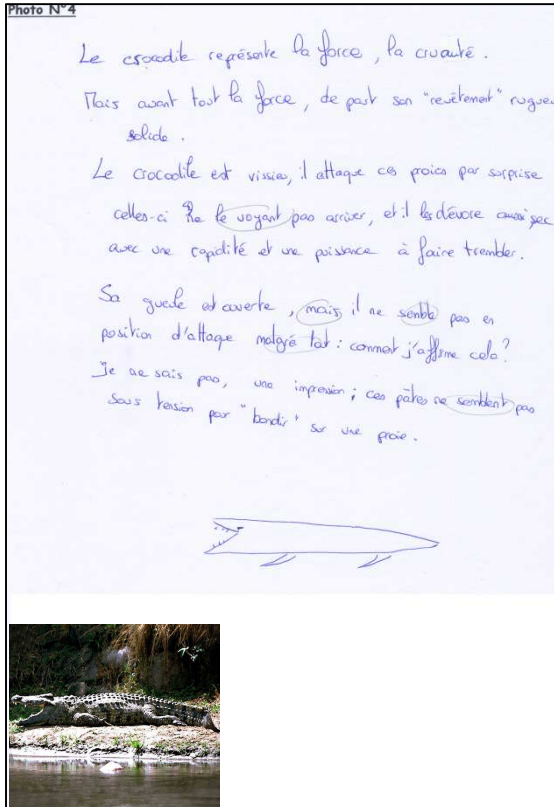 Photo N°4
Le crocodile représente la force, la cruauté.
Mais avant tout la force, de part son "revêtement" rugueu
solide.
Le crocodile est vissieu, il attaque ces proies par surprise
celles-ci ne le voyant pas arriver, et il les dévore aussi sec
avec une rapidité et une puissance à faire trembler.
Sa gueule est ouverte, mais il ne semble pas en
position d'attaque malgré tout : comment j'affirme cela?
Je ne sais pas, une impression ; ces pâtes ne semblent pas
sous tension pour "bondir" sur une proie.